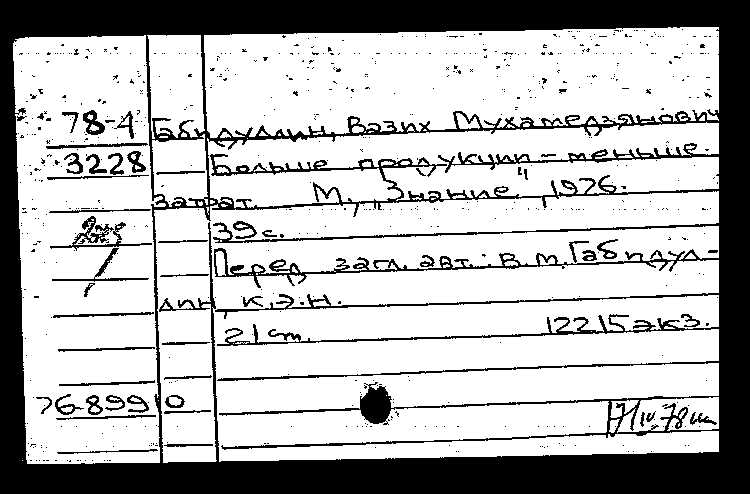 78-4 Габидуллин, Вазих Мухамедзянович
3228 Больше продукции - меньше
затрат. М., „Знание", 1976.
39 с.
Перед загл. авт.: В.М. Габидул-
лин, к.э.н.
21 ст. 12215 экз.
76-89910